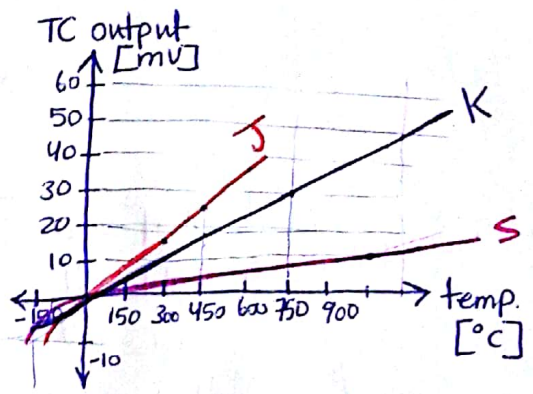 TC output
[mV]
60
50
40
30
20
10
-10
J
K
S
-150 150 300 450 600 750 900
temp.
[°C]